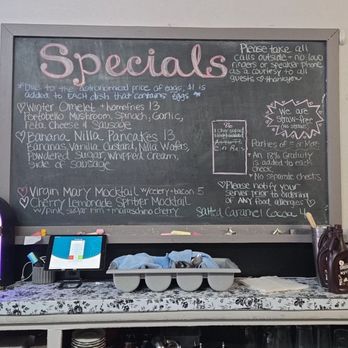 Specials
*Due to the astronomical price of eggs, $1 is
added to each dish that contains eggs *
♡ Winter Omelet + homefries 13
Portobello Mushroom, Spinach, Garlic,
Feta Cheese & Sausage
♡ Banana Nilla Pancakes 13
Bananas, Vanilla Custard, Nilla Wafers,
Powdered Sugar, Whipped cream,
Side of Sausage
♡ Virgin Mary Mocktail w/celery + bacon 5
♡ Cherry Lemonade Spritzer Mocktail
w/pink sugar rim + maraschino cherry
Please take all
calls outside - no loud
ringers or speaker phone
as a courtesy to all
guests ♡ thank you
We are
straw-free
Parties of
- An 18% Gratuity
is added to each
check
- No separate checks
♡ Please notify your
server prior to ordering
of ANY food allergies ♡
Salted Caramel Cocoa 4